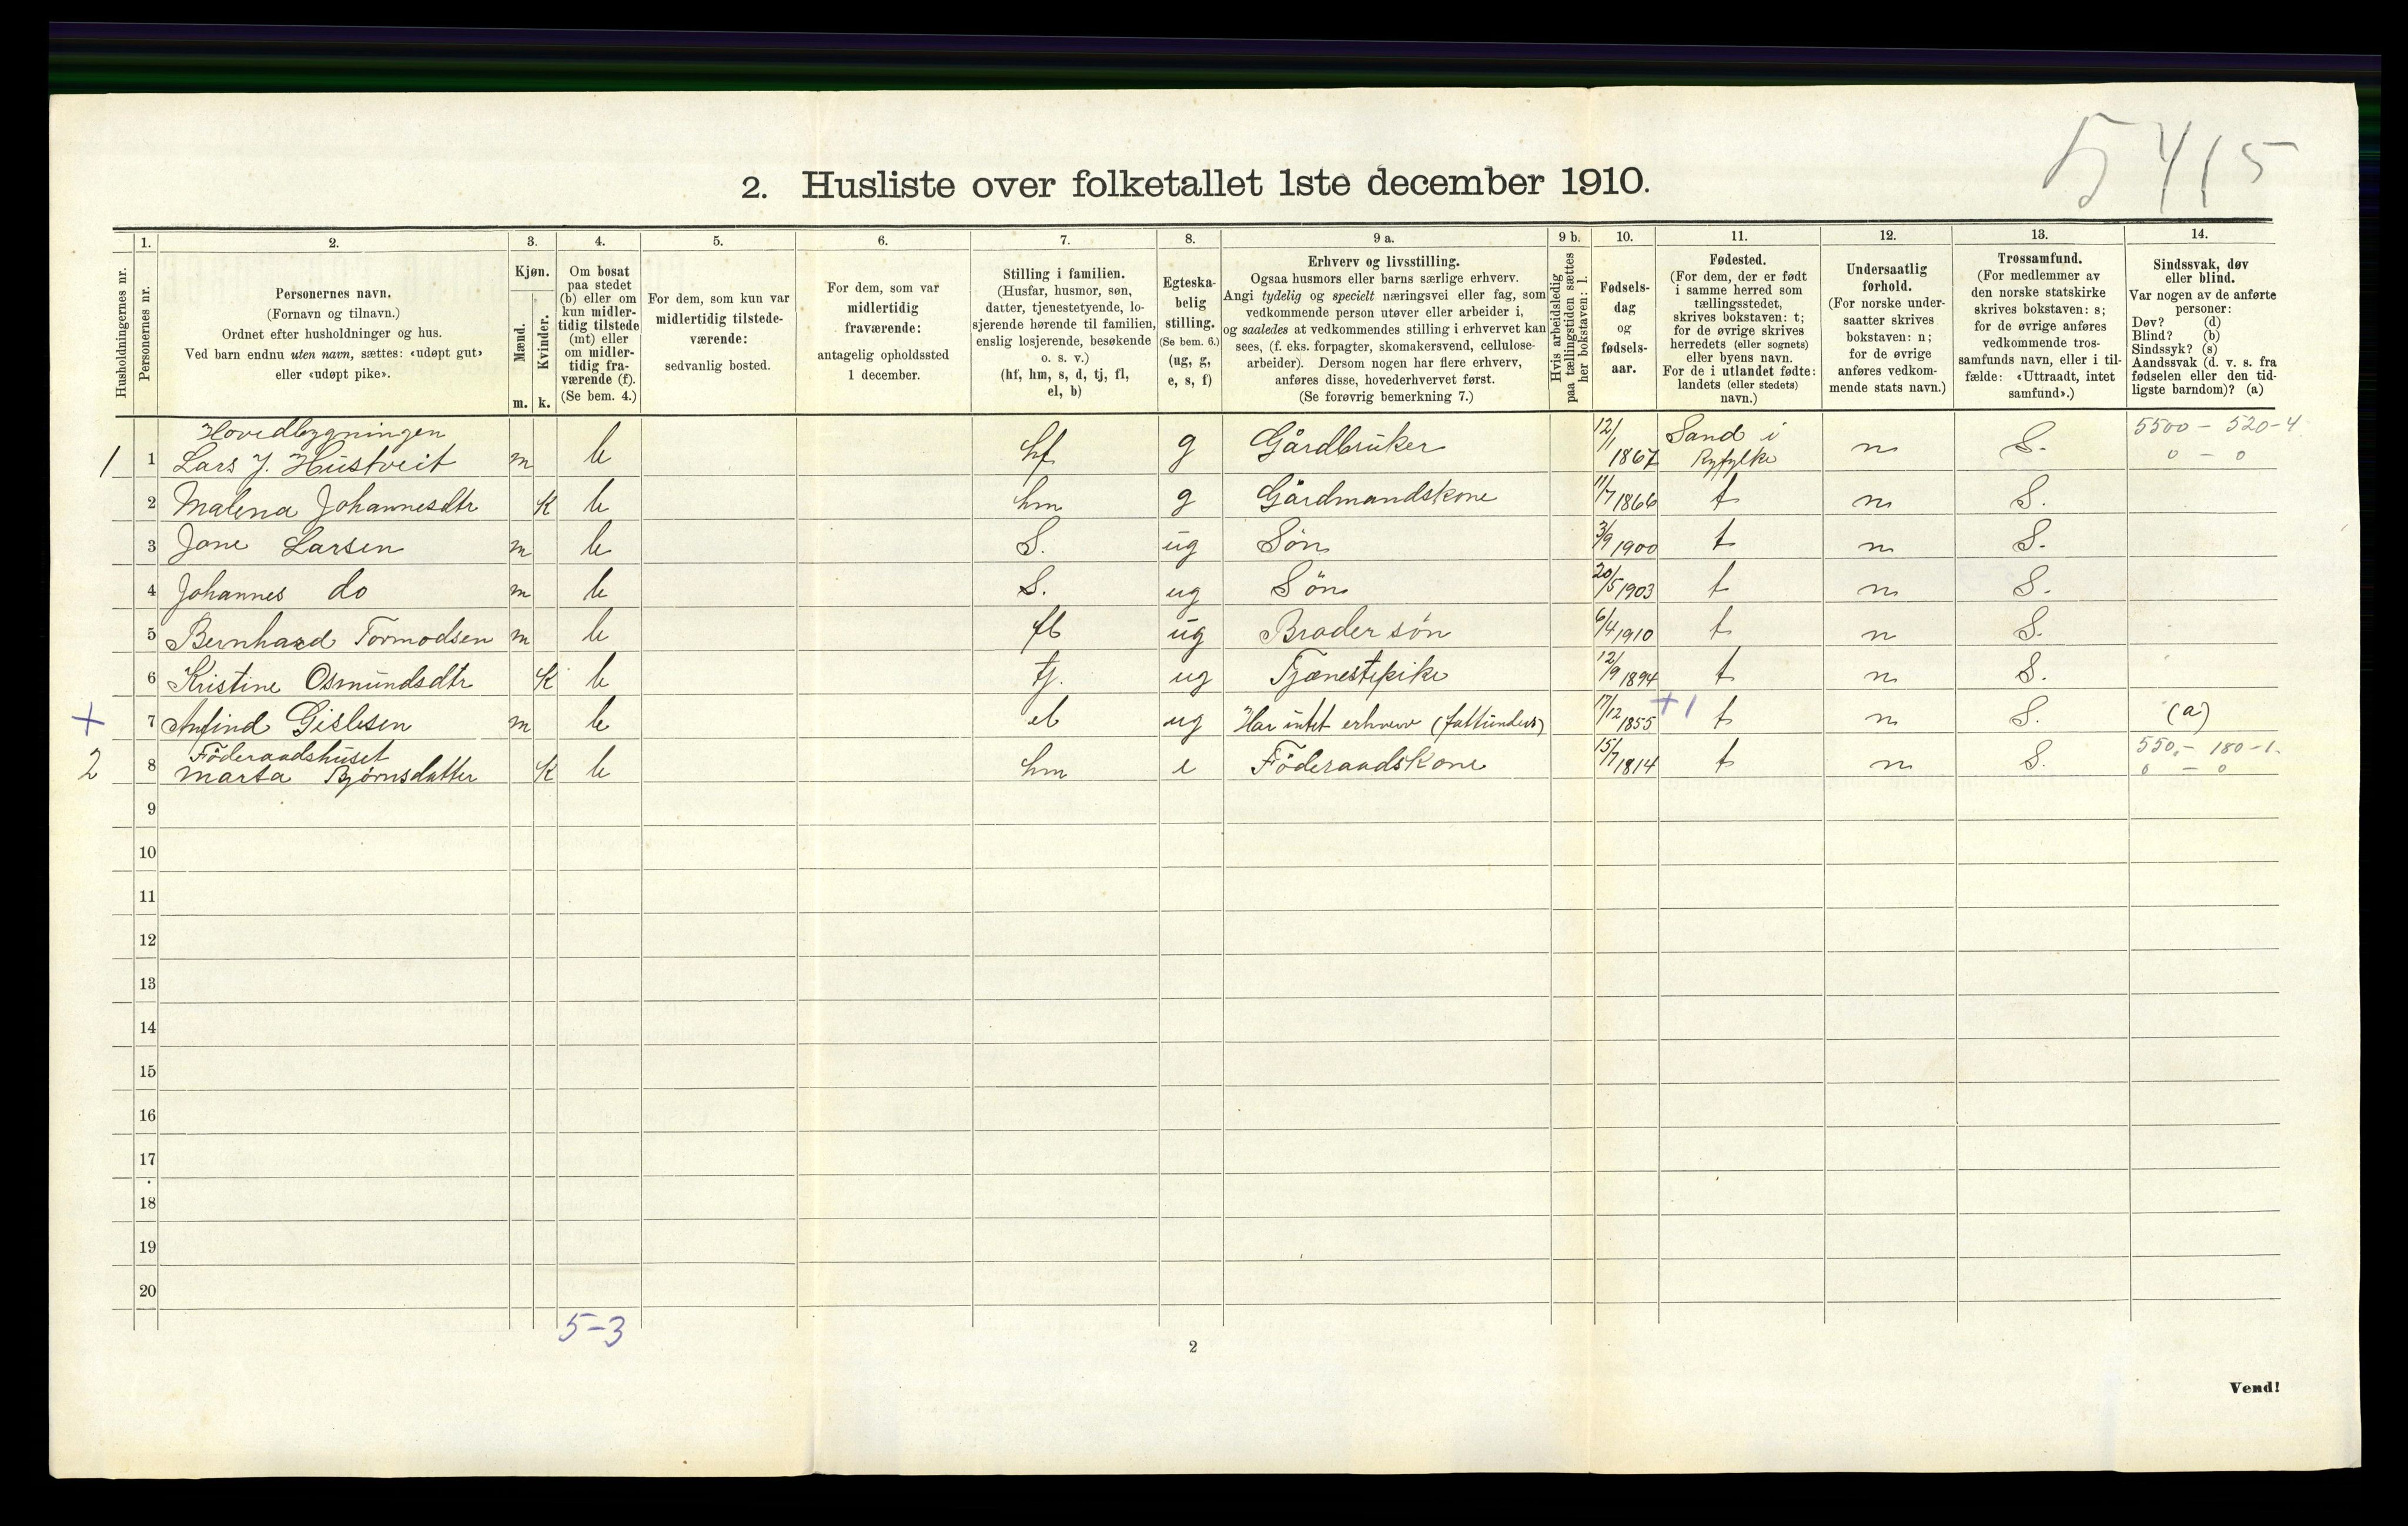 5415
2. Husliste over folketallet 1ste december 1910.
Husholdningernes nr.
1. Personernes nr.
2. Personernes navn.
(Fornavn og tilnavn.)
Ordnet efter husholdninger og hus.
Ved barn endnu uten navn, sættes: «udøpt gut»
eller «udøpt pike».
3. Kjøn.
Mænd. m.
Kvinder. k.
4. Om bosat
paa stedet
(b) eller om
kun midler-
tidig tilstede
(mt) eller
om midler-
tidig fra-
værende (f).
(Se bem. 4.)
5. For dem, som kun var
midlertidig tilstede-
værende:
sedvanlig bosted.
6. For dem, som var
midlertidig
fraværende:
antagelig opholdssted
1 december.
7. Stilling i familien.
(Husfar, husmor, søn,
datter, tjenestetyende, lo-
sjerende hørende til familien,
enslig losjerende, besøkende
o. s. v.)
(hf, hm, s, d, tj, fl,
el, b)
8. Egteska-
belig
stilling.
(Se bem. 6.)
(ug, g,
e, s, f)
9 a. Erhverv og livsstilling.
Ogsaa husmors eller barns særlige erhverv.
Angi tydelig og specielt næringsvei eller fag, som
vedkommende person utøver eller arbeider i,
og saaledes at vedkommendes stilling i erhvervet kan
sees, (f. eks. forpagter, skomakersvend, cellulose-
arbeider). Dersom nogen har flere erhverv,
anføres disse, hovederhvervet først.
(Se forøvrig bemerkning 7.)
9 b. Hvis arbeidsledig
paa tællingstiden sættes
her bokstaven: l.
10. Fødsels-
dag
og
fødsels-
aar.
11. Fødested.
(For dem, der er født
i samme herred som
tællingsstedet,
skrives bokstaven: t;
for de øvrige skrives
herredets (eller sognets)
eller byens navn.
For de i utlandet fødte:
landets (eller stedets)
navn.)
12. Undersaatlig
forhold.
(For norske under-
saatter skrives
bokstaven: n;
for de øvrige
anføres vedkom-
mende stats navn.)
13. Trossamfund.
(For medlemmer av
den norske statskirke
skrives bokstaven: s;
for de øvrige anføres
vedkommende tros-
samfunds navn, eller i til-
fælde: «Uttraadt, intet
samfund».)
14. Sindssvak, døv
eller blind.
Var nogen av de anførte
personer:
Døv? (d)
Blind? (b)
Sindssyk? (s)
Aandssvak (d. v. s. fra
fødselen eller den tid-
ligste barndom)? (a)
Hovedbygningen
1 1 Lars J. Hustveit m b hf g Gårdbruker 12/1 1867 Sand i Ryfylke n S. 5500 - 520-4
0 - 0
2 Malena Johannesdtr K b hm g Gårdmandskone 11/7 1866 t n S.
3 Jone Larsen m b S. ug Søn 3/9 1900 t n S.
4 Johannes do m b S. ug Søn 20/5 1903 t n S.
5 Bernhard Tormodsen m b fl ug Broder søn 6/4 1910 t n S.
6 Kristine Osmundsdtr K b tj. ug Tjænestepike 12/9 1894 t n S.
+ 7 Anfind Gislesen m b el ug Har intet erhverv (fattunders) 17/12 1855 +1 t n S. (a)
Föderaadshuset
2 8 Marta Bjørnsdatter K b hm e Föderaadskone 15/7 1814 t n S. 550,- 180-1.
0 - 0
9
10
11
12
13
14
15
16
17
18
19
20
5-3
2
Vend!